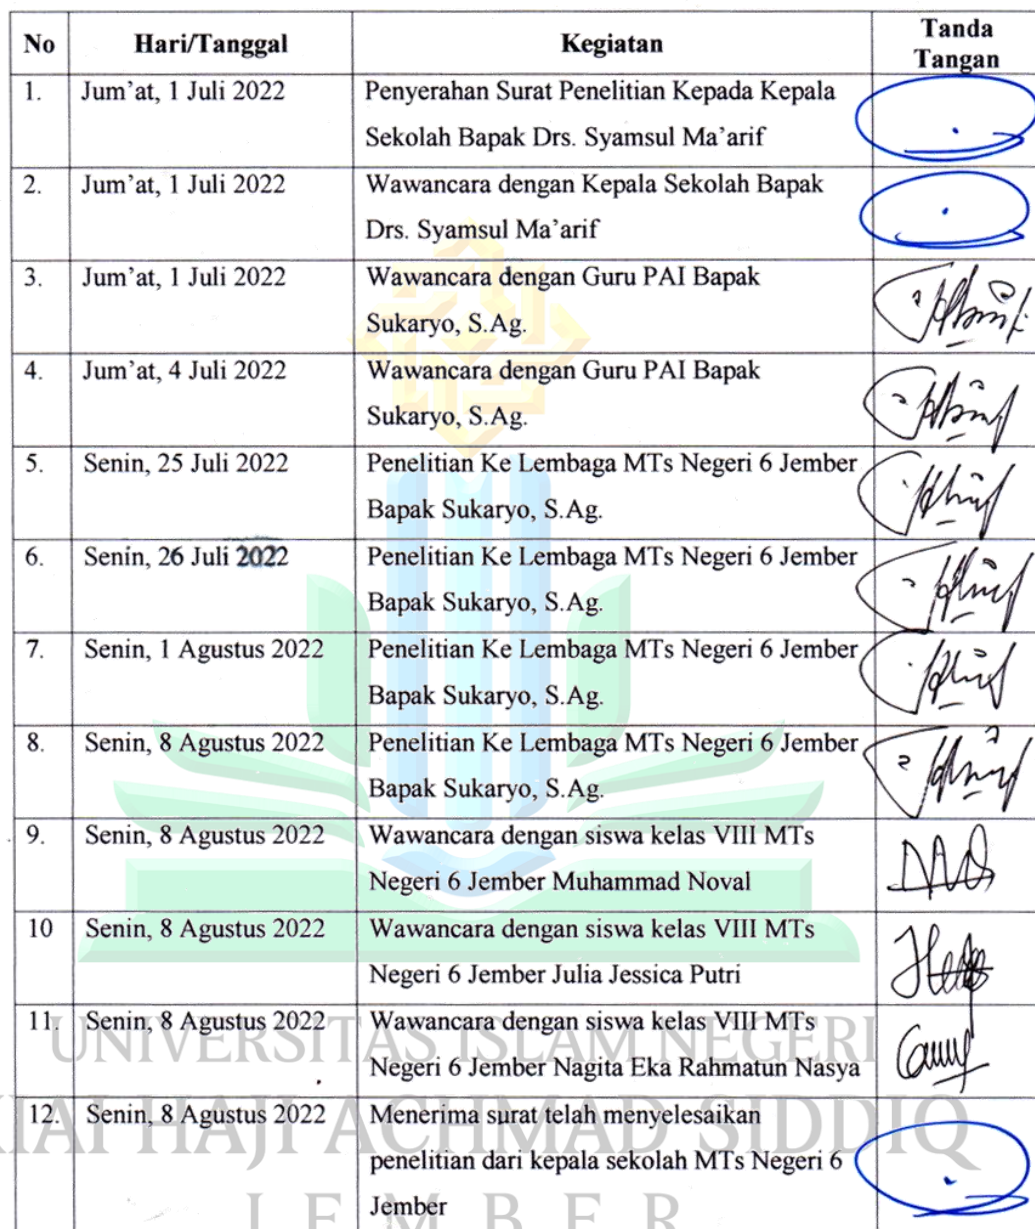 No Hari/Tanggal Kegiatan Tanda
Tangan
1. Jum'at, 1 Juli 2022 Penyerahan Surat Penelitian Kepada Kepala
Sekolah Bapak Drs. Syamsul Ma'arif
2. Jum'at, 1 Juli 2022 Wawancara dengan Kepala Sekolah Bapak
Drs. Syamsul Ma'arif
3. Jum'at, 1 Juli 2022 Wawancara dengan Guru PAI Bapak
Sukaryo, S.Ag.
4. Jum'at, 4 Juli 2022 Wawancara dengan Guru PAI Bapak
Sukaryo, S.Ag.
5. Senin, 25 Juli 2022 Penelitian Ke Lembaga MTs Negeri 6 Jember
Bapak Sukaryo, S.Ag.
6. Senin, 26 Juli 2022 Penelitian Ke Lembaga MTs Negeri 6 Jember
Bapak Sukaryo, S.Ag.
7. Senin, 1 Agustus 2022 Penelitian Ke Lembaga MTs Negeri 6 Jember
Bapak Sukaryo, S.Ag.
8. Senin, 8 Agustus 2022 Penelitian Ke Lembaga MTs Negeri 6 Jember
Bapak Sukaryo, S.Ag.
9. Senin, 8 Agustus 2022 Wawancara dengan siswa kelas VIII MTs
Negeri 6 Jember Muhammad Noval
10 Senin, 8 Agustus 2022 Wawancara dengan siswa kelas VIII MTs
Negeri 6 Jember Julia Jessica Putri
11. Senin, 8 Agustus 2022 Wawancara dengan siswa kelas VIII MTs
UNIVERSITAS ISLAM NEGERI
Negeri 6 Jember Nagita Eka Rahmatun Nasya
12. Senin, 8 Agustus 2022 Menerima surat telah menyelesaikan
KIAI HAJI ACHMAD SIDDIQ
penelitian dari kepala sekolah MTs Negeri 6
Jember
JEMBER